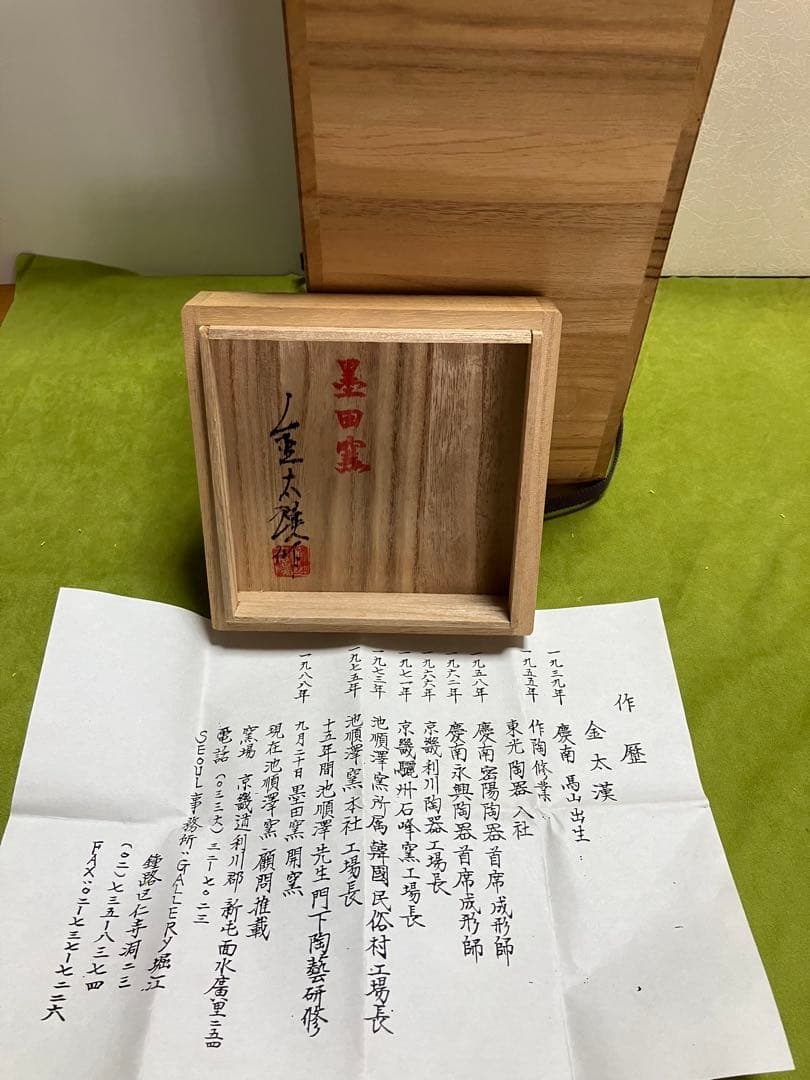 墨田窯
金太漢作
作歴
金太漢
一九三九年 慶南 馬山出生
一九五五年 作陶修業
東光陶器入社
一九五八年 慶南密陽陶器首席成形師
一九六二年 慶南永興陶器首席成形師
一九六六年 京畿利川陶器工場長
一九七一年 京畿驪州石峰窯工場長
一九七三年 池順澤窯所属韓國民俗村工場長
一九七五年 池順澤窯本社工場長
十五年間池順澤先生門下陶藝研修
一九八八年 九月二十日墨田窯開窯
現在池順澤窯顧問推載
窯場 京畿道利川郡新屯面水廣里二五四
電話(〇三三六)三二ー七〇二三
SEOUL事務所:GALLERY堀江
鍾路区仁寺洞二三
(〇二)七三五ー八三七四
FAX:〇二ー七三七ー七二二六